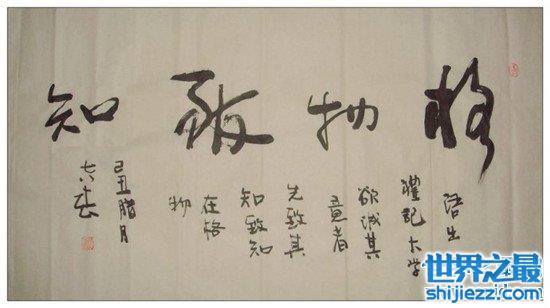 格物致知
语出
禮記大学
欲诚其
意者
先致其
知致知
在格
物
己丑腊月
世界之最